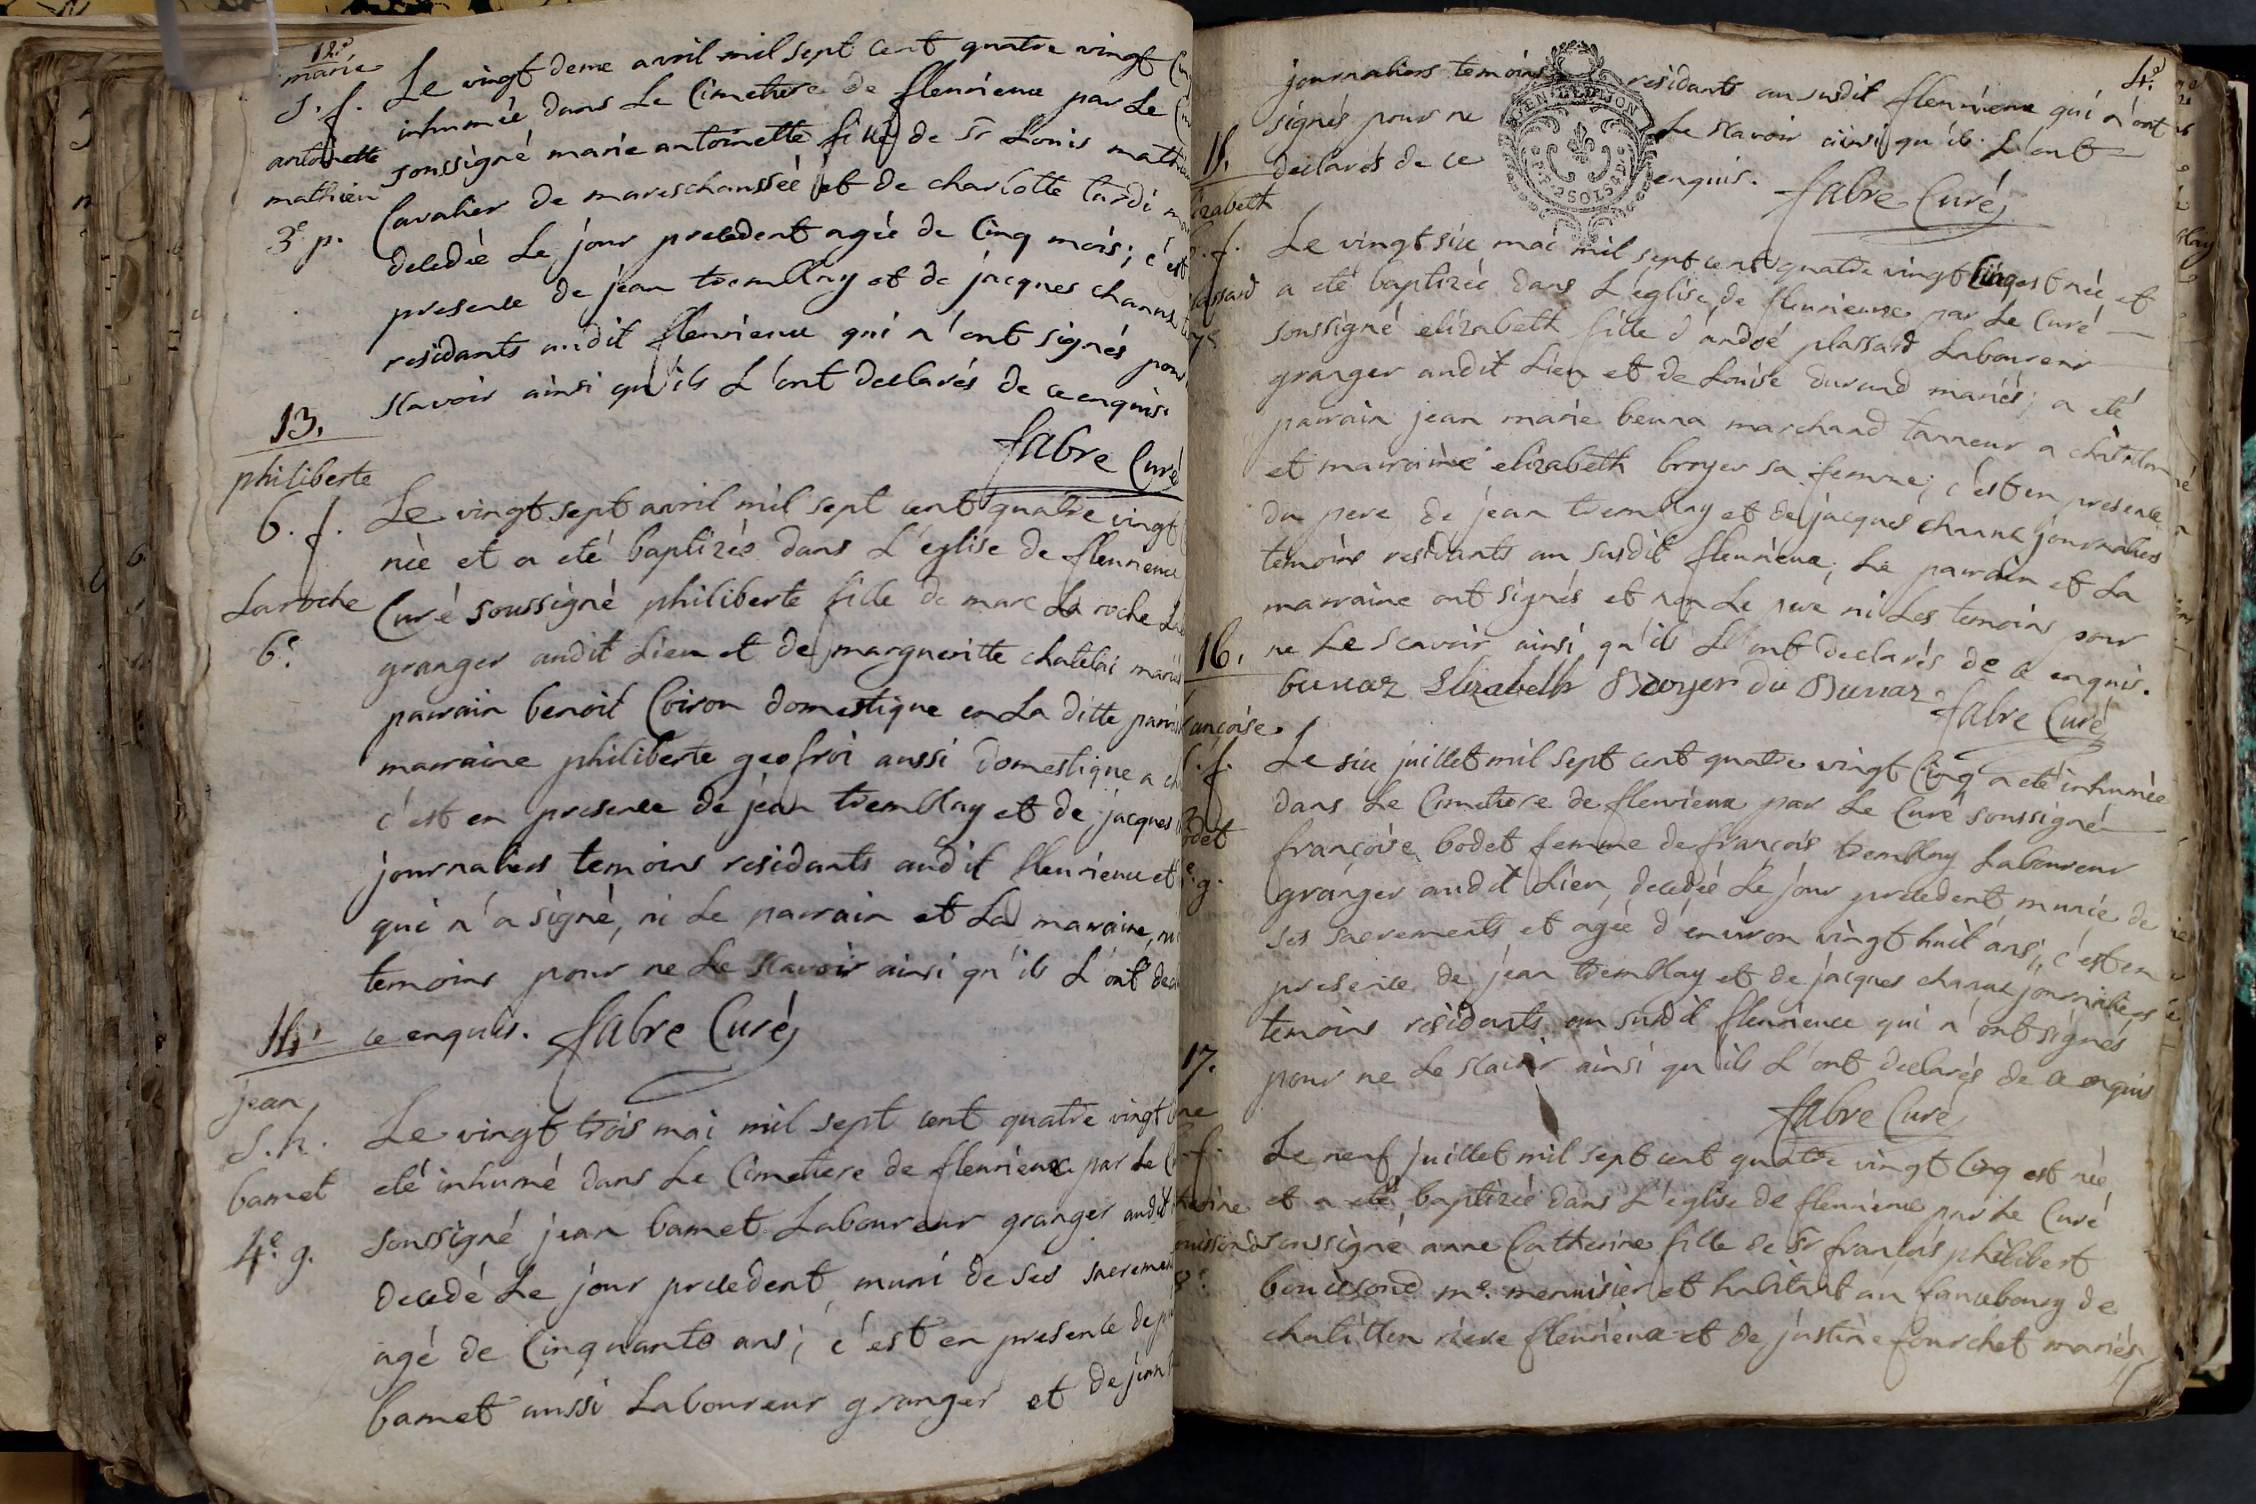 12.e
marie
s. f.
antoinette
mathieu
3.e p.
Le vingt deux avril mil sept cent quatre vingt
inhumée dans Le Cimetiere de fleurieux par Le
soussigné marie antoinette fille de Sr Louis mathieu
Cavalier de mareschaussée et de charlotte tardi
decedée Le jour precedent agée de Cinq mois; c'est
presence de jean tremblay et de jacques charux
residants audit fleurieux qui n'ont signés pour
scavoir ainsi qu'ils L'ont declarés de ce enquis.
fabre Curé
13.
philiberte
b. f.
Laroche
6.e
Le vingt sept avril mil sept cent quatre vingt
née et a eté baptizée dans L'eglise de fleurieux
Curé soussigné philiberte fille de marc La roche
granger audit Lieu et de margueritte chatelai mariés
parrain benoit Coiron domestique en La ditte
marraine philiberte geofroi aussi domestique a
c'est en presence de jean tremblay et de jacques
journaliers temoins residants audit fleurieux et
qui n'a signé, ni Le parrain et La marraine, ni
temoins pour ne Le scavoir ainsi qu'ils L'ont
ce enquis. fabre Curé
14.
jean
s. h.
bamet
4.e g.
Le vingt trois mai mil sept cent quatre vingt
eté inhumé dans Le Cimetiere de fleurieux par Le
soussigné jean bamet Laboureur granger audit
decedé Le jour precedent muni de ses
agé de Cinquante ans; c'est en presence de
bamet aussi Laboureur granger et de jean
4.e
journaliers temoins residants au susdit fleurieux qui n'ont
signés pour ne Le scavoir ainsi qu'ils L'ont
declarés de ce enquis.
fabre Curé
GEN. DE DIJON
2 SOLS
15.
izabeth
b. f.
lassard
7.e
Le vingt six mai mil sept cent quatre vingt Cinq est née et
a eté baptizée dans L'eglise de fleurieux par Le Curé
soussigné elizabeth fille d'andré plassard Laboureur
granger audit Lieu et de Louise durand mariés; a eté
parrain jean marie beuna marchand tanneur a châtillon
et marraine elizabeth broyer sa femme; c'est en presence
du pere de jean tremblay et de jacques charux journaliers
temoins residants au susdit fleurieux; Le parrain et La
marraine ont signés et non Le pere ni Les temoins pour
ne Le scavoir ainsi qu'ils L'ont declarés de ce enquis.
Elizabeth Broyer
fabre Curé
16.
ançoise
s. f.
odet
5.e g.
Le six juillet mil sept cent quatre vingt Cinq a eté inhumée
dans Le Cimetiere de fleurieux par Le Curé soussigné
françoise bodet femme de françois tremblay Laboureur
granger audit Lieu, decedée Le jour precedent munie de
ses sacrements et agée d'environ vingt huit ans; c'est en
presence de jean tremblay et de jacques charux journaliers
temoins residants au susdit fleurieux qui n'ont signés
pour ne Le scavoir ainsi qu'ils L'ont declarés de ce enquis
fabre Curé
17.
ne
b. f.
therine
ouissond
8.e
Le neuf juillet mil sept cent quatre vingt Cinq est née
et a eté baptizée dans L'eglise de fleurieux par Le Curé
soussigné anne Catherine fille de Sr françois philibert
bouissond m.e menuisier et habitant au fauxbourg de
chatillon riere fleurieux et de justine fourchet mariés